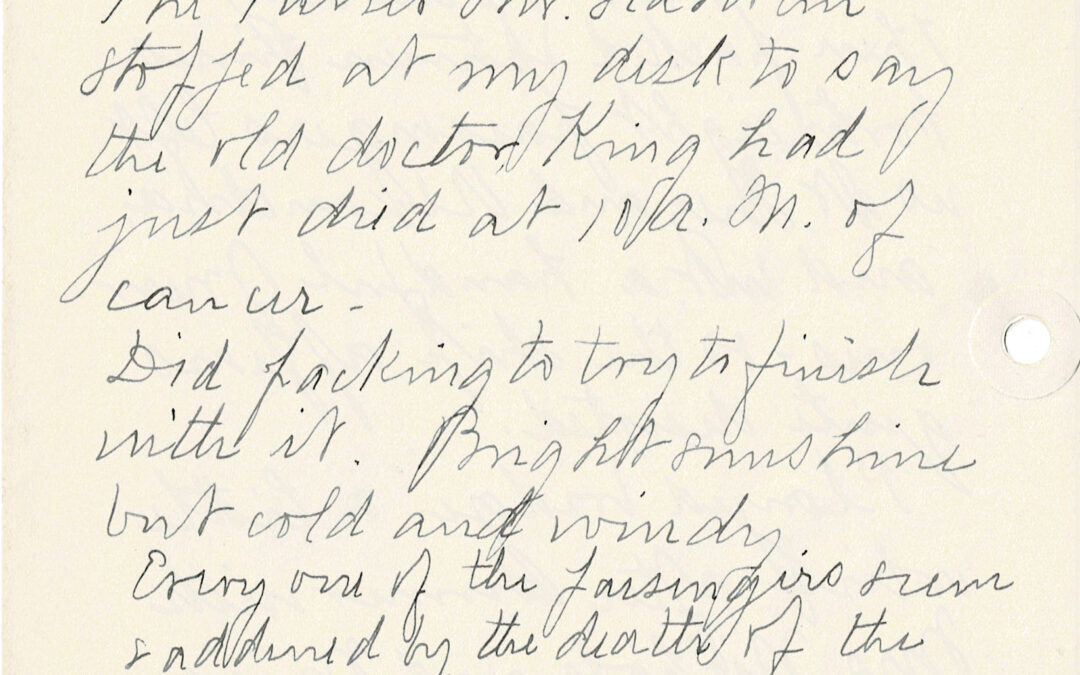 The Purser Mr.
stopped at my desk to say
the old doctor, King had
just died at 10 A. M. of
cancer -
Did packing to try to finish
with it. Bright sunshine
but cold and windy
Every one of the passengers seem
saddened by the death of the